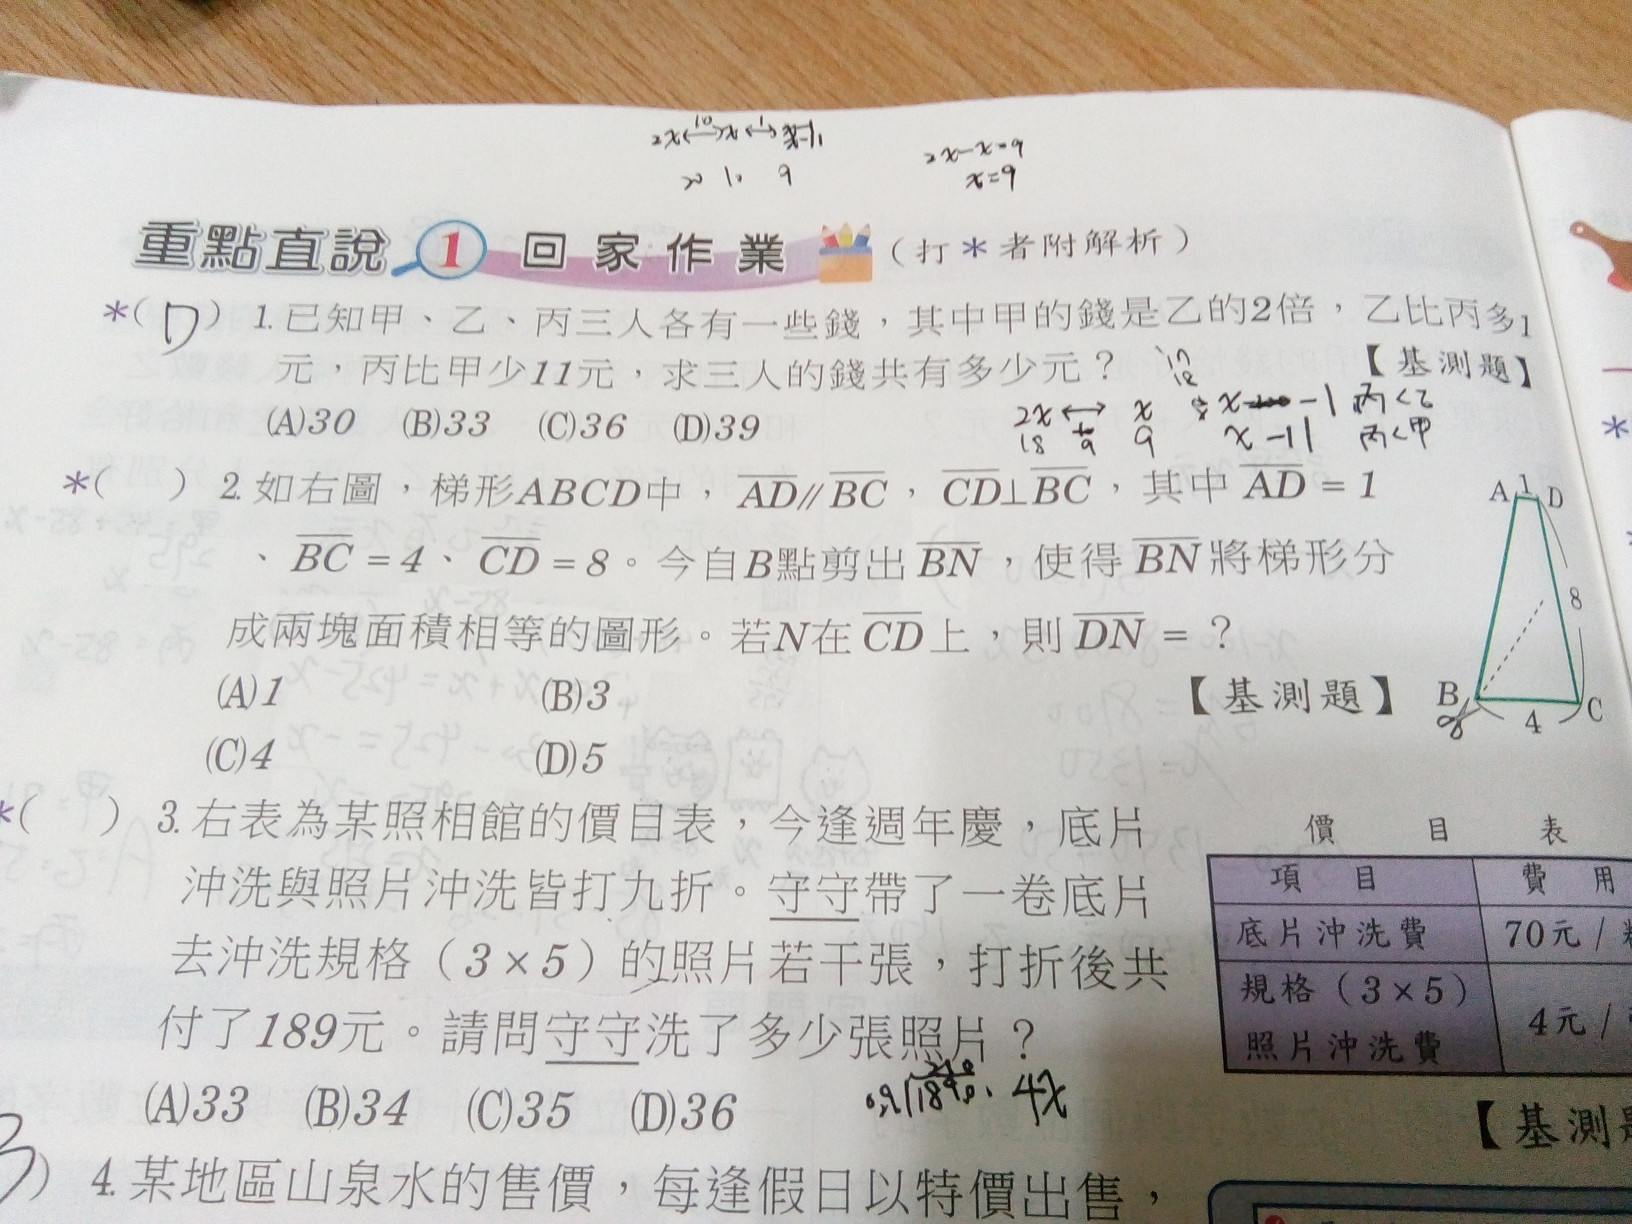 2x ↔ x ↔ x-1
10 1
2x-x=9
x=9
重點直說 1 回家作業 （打*者附解析）
*（D）1.已知甲、乙、丙三人各有一些錢，其中甲的錢是乙的2倍，乙比丙多1
元，丙比甲少11元，求三人的錢共有多少元？ 【基測題】
(A)30 (B)33 (C)36 (D)39
2x ↔ x x -1 丙<乙
18 9 9 x-11 丙<甲
*（ ）2.如右圖，梯形ABCD中，AD//BC，CD⊥BC，其中AD=1
、BC=4、CD=8。今自B點剪出BN，使得BN將梯形分
成兩塊面積相等的圖形。若N在CD上，則DN=？
(A)1 (B)3 【基測題】
(C)4 (D)5
A 1 D
8
B 4 C
*（ ）3.右表為某照相館的價目表，今逢週年慶，底片
沖洗與照片沖洗皆打九折。守守帶了一卷底片
去沖洗規格（3×5）的照片若干張，打折後共
付了189元。請問守守洗了多少張照片？
(A)33 (B)34 (C)35 (D)36
210
0.9 189.0 4x
價目表
項目 費用
底片沖洗費 70元/
規格（3×5）
照片沖洗費 4元/
【基測
）4.某地區山泉水的售價，每逢假日以特價出售，